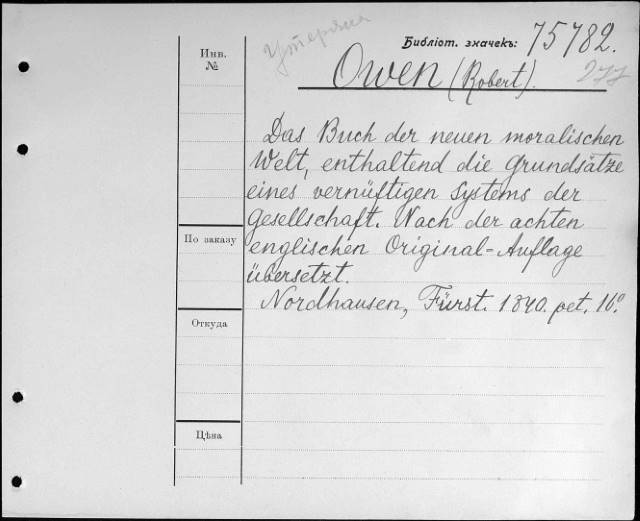 Утеряна
Библіот. значекъ: 75782.
277
Инв.
№
Owen (Robert).
Das Buch der neuen moralischen
Welt, enthaltend die Grundsätze
eines vernüftigen Systems der
Gesellschaft. Nach der achten
englischen Original-Auflage
übersetzt.
Nordhausen, Fürst. 1840. pet. 16º
По заказу
Откуда
Цѣна